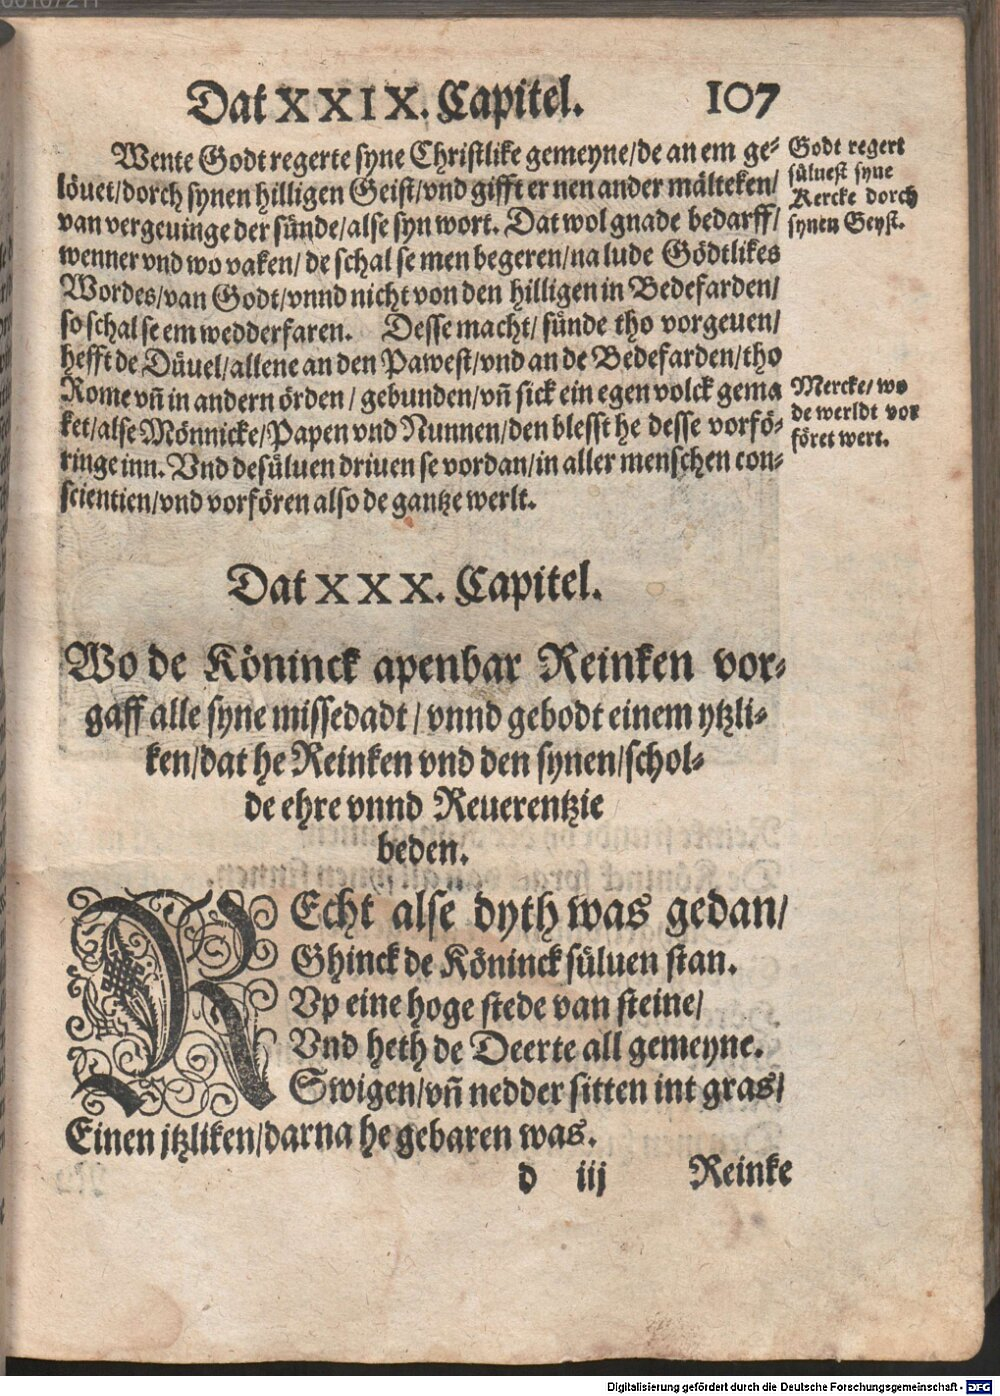 Dat XXIX. Capitel. 107
Wente Godt regerte syne Christlike gemeyne/de an em ge⸗
löuet/dorch synen hilligen Geist/vnd gifft er nen ander mälteken/
van vergeuinge der sünde/alse syn wort. Dat wol gnade bedarff/
wenner vnd wo vaken/ de schal se men begeren/na lude Gödtlikes
Wordes/van Godt/vnnd nicht von den hilligen in Bedefarden/
so schal se em wedderfaren. Desse macht/ sünde tho vorgeuen/
hefft de Düuel/allene an den Pawest/vnd an de Bedefarden/tho
Rome vñ in andern örden/ gebunden/vñ sick ein egen volck gema
ket/alse Mönnicke/Papen vnd Nunnen/den blesst he desse vorfö⸗
ringe inn. Vnd desüluen driuen se vordan/in aller menschen con⸗
scientien/vnd vorfören also de gantze werlt.
Godt regert
süluest syne
Kercke dorch
synen Geyst.
Mercke/ wo
de werldt vor
föret wert.
Dat XXX. Capitel.
Wo de Köninck apenbar Reinken vor⸗
gaff alle syne missedadt/ vnnd gebodt einem ytzli⸗
ken/dat he Reinken vnd den synen/schol⸗
de ehre vnnd Reuerentzie
beden.
REcht alse dyth was gedan/
Ghinck de Köninck süluen stan.
Vp eine hoge stede van steine/
Vnd heth de Deerte all gemeyne.
Swigen/vñ nedder sitten int gras/
Einen jtzliken/darna he gebaren was.
d iij Reinke
Digitalisierung gefördert durch die Deutsche Forschungsgemeinschaft - DFG